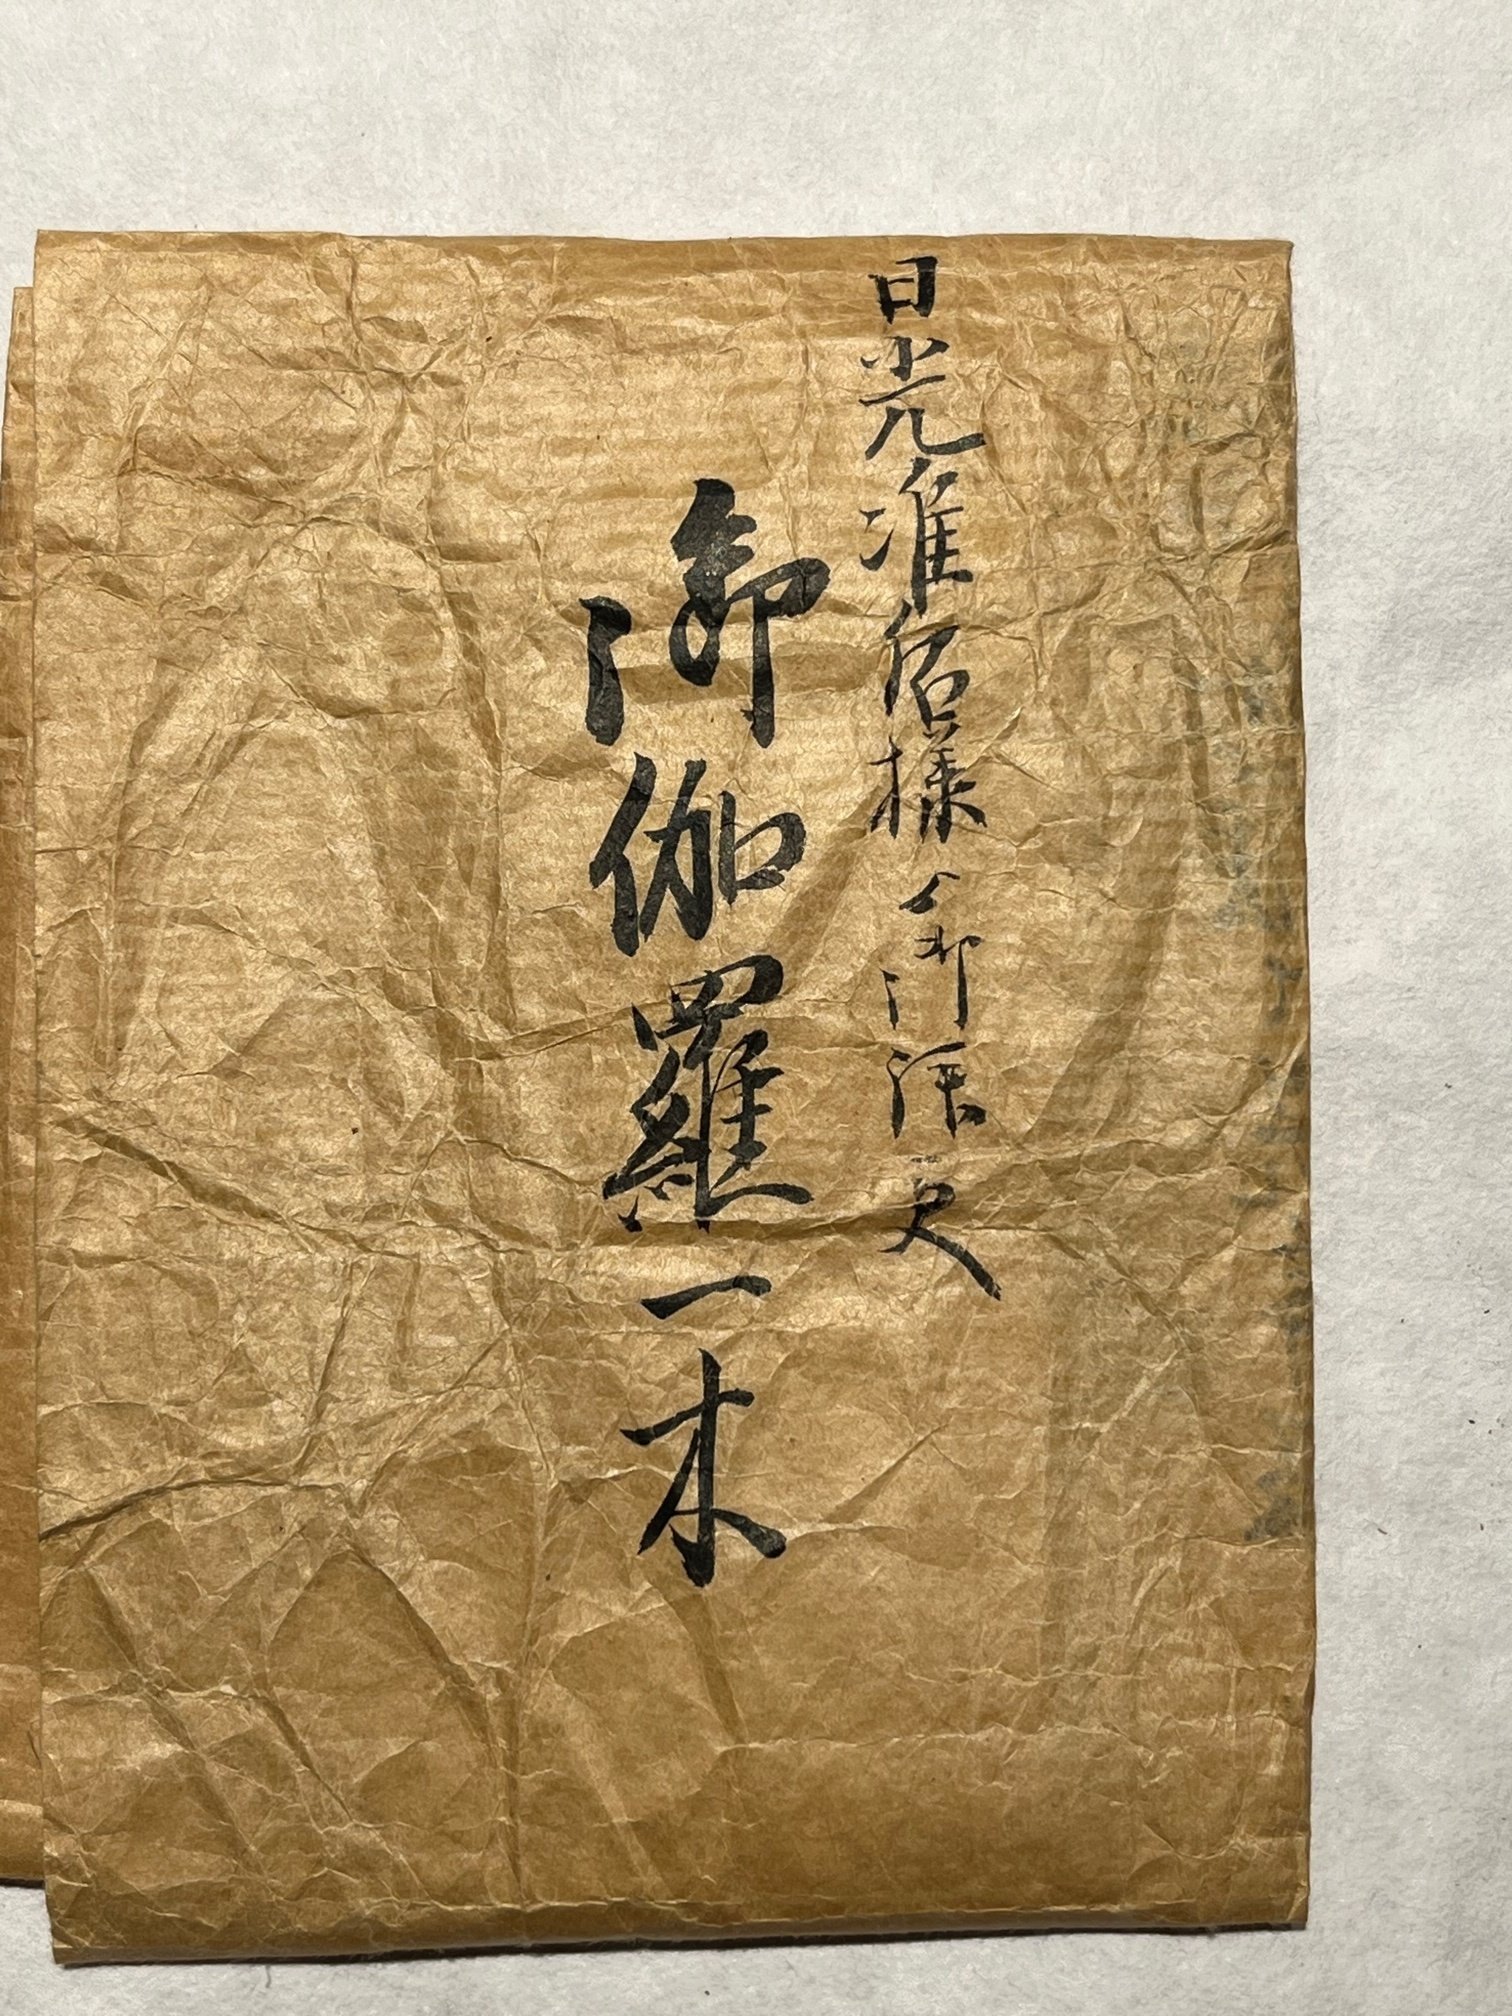 日光准后様ゟ御伝来
御伽羅一木